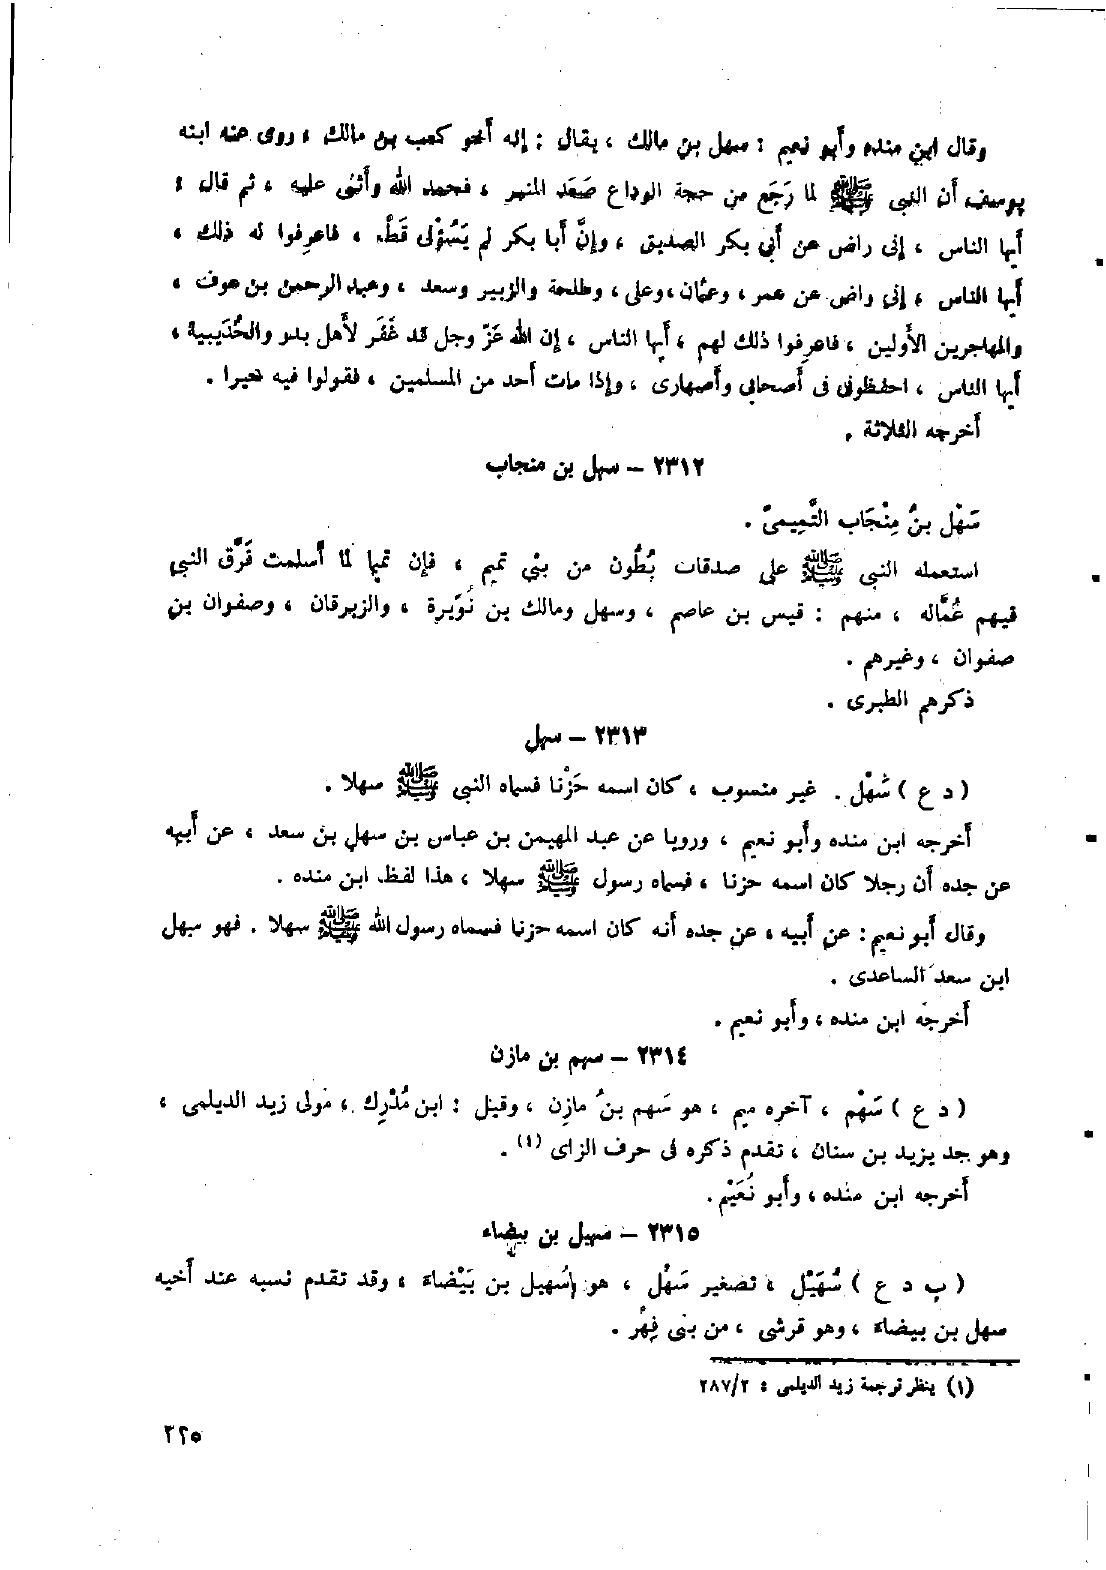 وقال ابن منده وأبو نعيم : سهل بن مالك ، يقال : إنه أخو كعب بن مالك ، روى عنه ابنه
يوسف أن النبى ﷺ لما رَجَع من حجة الوداع صَعَد المنبر ، فحمد الله وأثنى عليه ، ثم قال :
أيها الناس ، إنى راض عن أبى بكر الصديق ، وإنَّ أبا بكر لم يَسُؤْنى قَطُّ ، فاعرِفوا له ذلك ،
أيها الناس ، إنى راض عن عمر ، وعثمان ، وعلى ، وطلحة والزبير وسعد ، وعبد الرحمن بن عوف ،
والمهاجرين الأولين ، فاعرِفوا ذلك لهم ، أيها الناس ، إن الله عَزّ وجل قد غَفَر لأهل بدر والحُدَيبية ،
أيها الناس ، احفظونى فى أصحابى وأصهارى ، وإذا مات أحد من المسلمين ، فقولوا فيه خيرا .
أخرجه الثلاثة .
٢٣١٢ – سهل بن منجاب
سَهْل بنُ مِنْجَاب التَّمِيمىّ .
استعمله النبى ﷺ على صدقات بُطُون من بنى تميم ، فإن تميما لما أسلمت فَرَّق النبى
فيهم عُمَّاله ، منهم : قيس بن عاصم ، وسهل ومالك بن نُوَيرة ، والزبرقان ، وصفوان بن
صفوان ، وغيرهم .
ذكرهم الطبرى .
٢٣١٣ – سهل
( د ع ) سَهْل . غير منسوب ، كان اسمه حَزْنا فسماه النبى ﷺ سهلا .
أخرجه ابن منده وأبو نعيم ، ورويا عن عبد المهيمن بن عباس بن سهل بن سعد ، عن أبيه
عن جده أن رجلا كان اسمه حزنا ، فسماه رسول ﷺ سهلا ، هذا لفظ ابن منده .
وقال أبو نعيم : عن أبيه ، عن جده أنه كان اسمه حزنا فسماه رسول الله ﷺ سهلا . فهو سهل
ابن سعد الساعدى .
أخرجه ابن منده ، وأبو نعيم .
٢٣١٤ – سهم بن مازن
( د ع ) سَهْم ، آخره ميم ، هو سَهم بنُ مازِن ، وقيل : ابن مُدْرِك ، مولى زيد الديلمى ،
وهو جد يزيد بن سنان ، تقدم ذكره فى حرف الزاى (١) .
أخرجه ابن منده ، وأبو نُعَيْم .
٢٣١٥ – سهيل بن بيضاء
( ب د ع ) سُهَيْل ، تصغير سَهْل ، هو سُهيل بن بَيْضاء ، وقد تقدم نسبه عند أخيه
سهل بن بيضاء ، وهو قرشى ، من بنى فِهْر .
(١) ينظر ترجمة زيد الديلمى : ٢/٢٨٧
٢٢٥